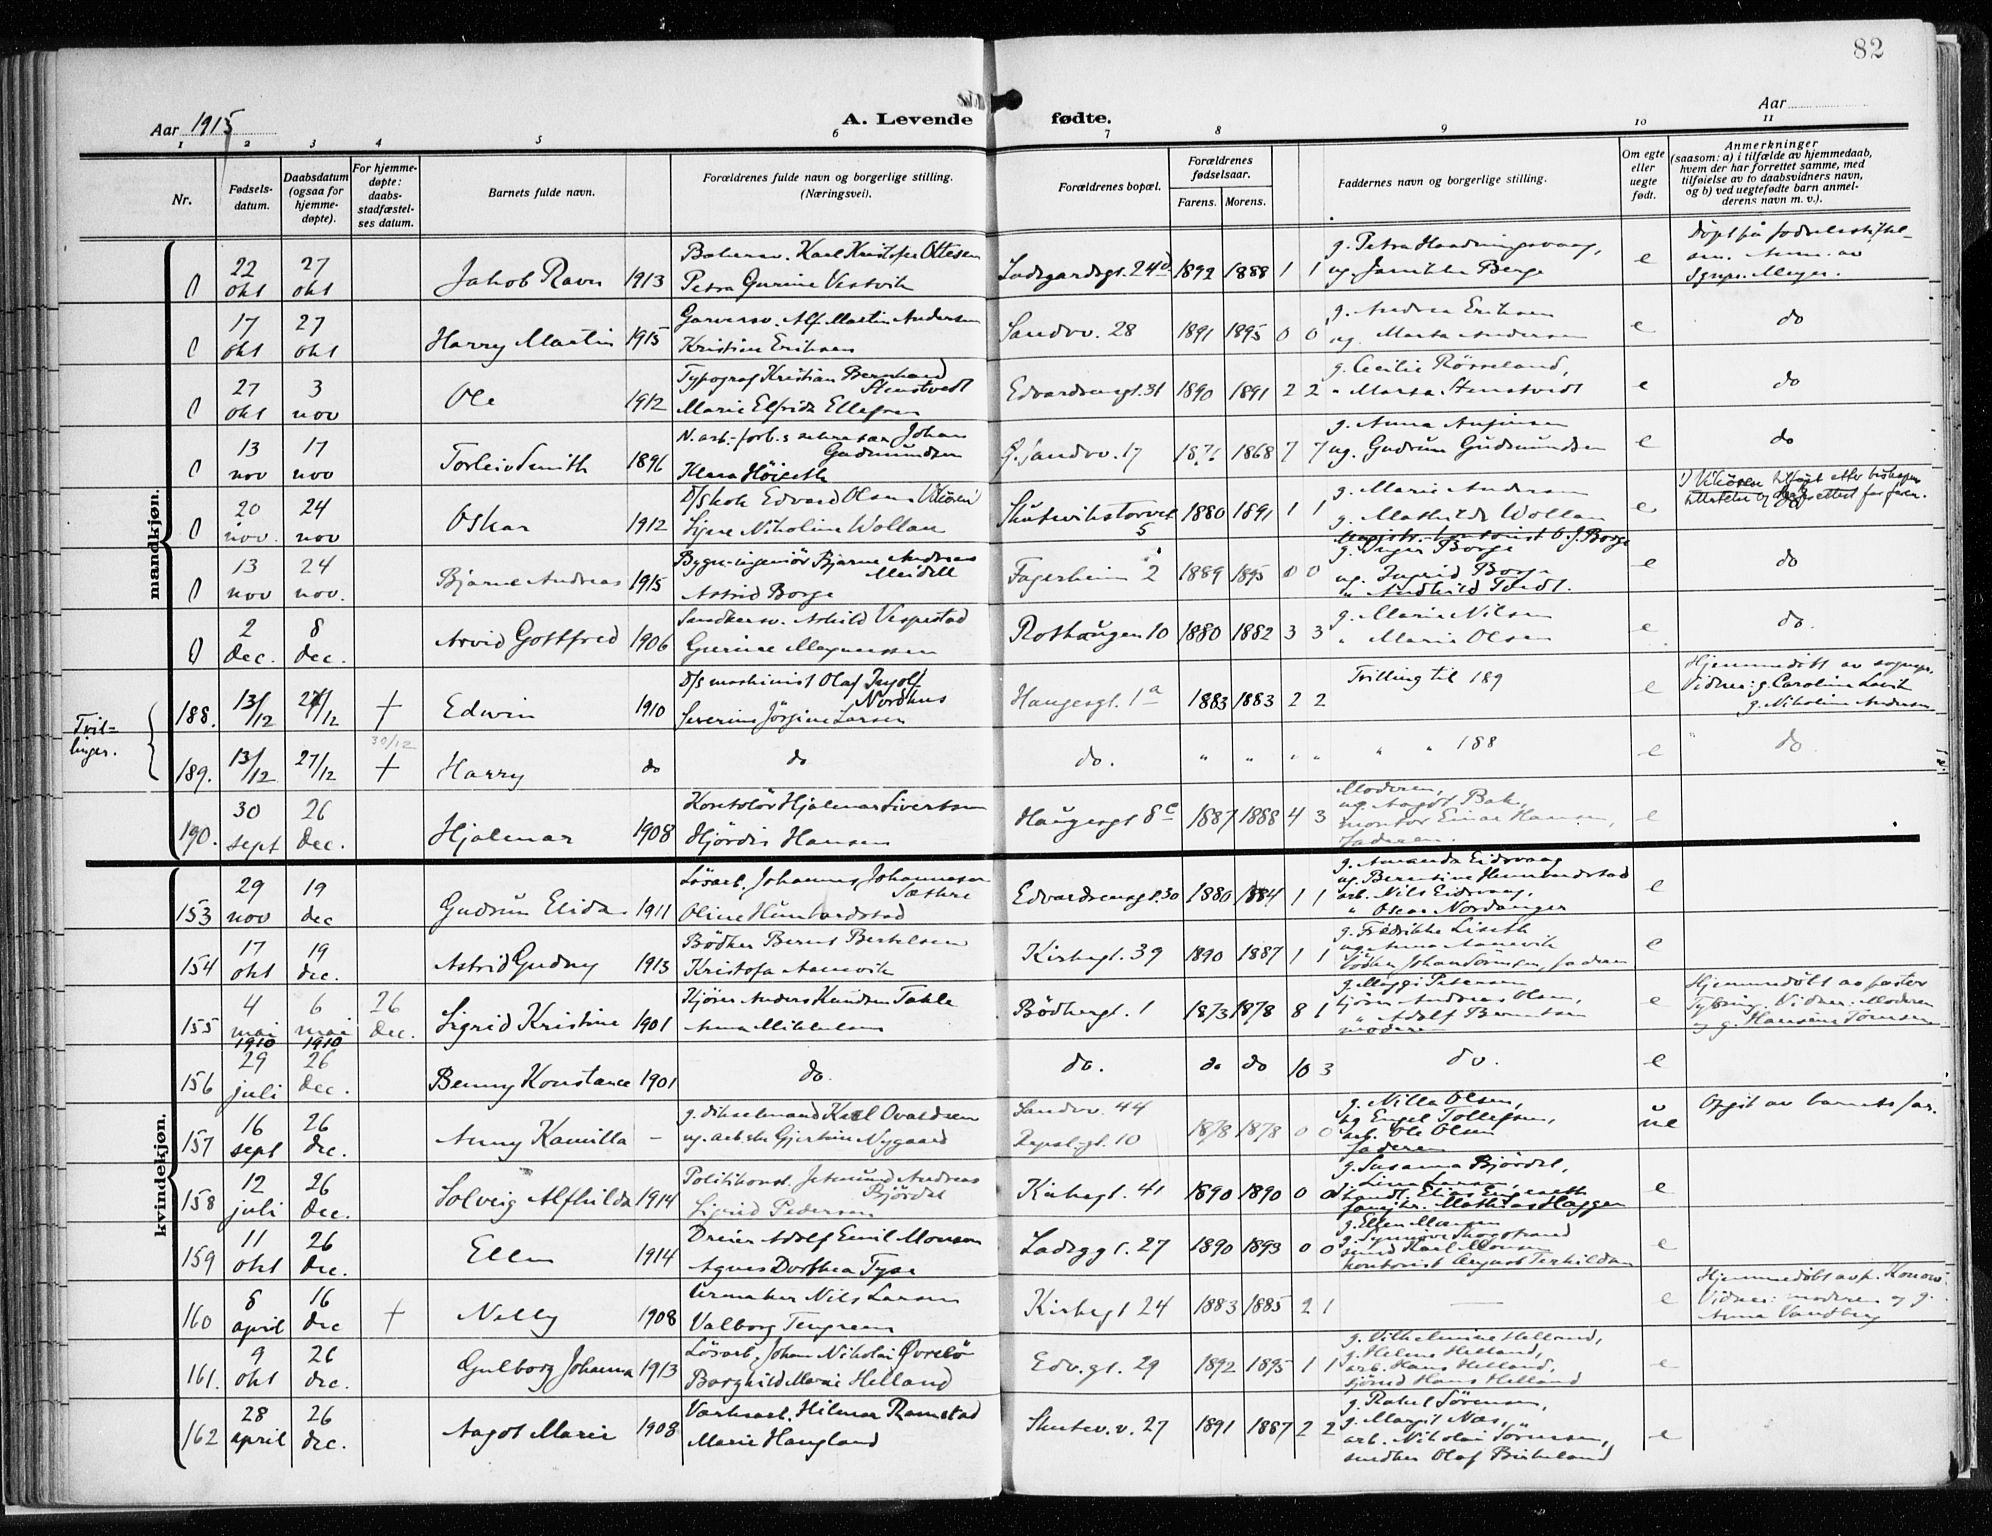 82
Aar 1915
A. Levende fødte.
Aar
1 2 3 4 5 6 7 8 9 10 11
Nr.
Fødsels-
datum.
Daabsdatum
(ogsaa for
hjemme-
døpte).
For hjemme-
døpte:
daabs-
stadfæstel-
ses datum.
Barnets fulde navn.
Forældrenes fulde navn og borgerlige stilling.
(Næringsvei).
Forældrenes bopæl.
Forældrenes
fødselsaar.
Farens. Morens.
Faddernes navn og borgerlige stilling.
Om egte
eller
uegte
født.
Anmerkninger
(saasom: a) i tilfælde av hjemmedaab,
hvem der har forrettet samme, med
tilføielse av to daabsvidners navn,
og b) ved uegtefødte barn anmel-
derens navn m. v.).
mandkjøn.
0 22 okt 27 okt Jakob Ravn 1913
Karl Kristofer Ottesen
Petra Gurine Vestvik
Ladegaardsgt. 24 1892 1888 1 1
g. Petra
ug. Berge
e
0 17 okt 27 okt Harry Martin 1915
Garversv. Alf Martin Andersen
Kristine Eriksen
Sandvv. 28 1891 1895 0 0
g. Andrea Eriksen
ug. Marta Andersen
e do
0 27 okt 3 nov Ole 1912
Typograf Kristian Bernhard
Stenstvedt
Marie Elfrida Ellefsen
Edvardsensgt. 31 1890 1891 2 2
g. Cecilie Rørseland,
" Marta Stenstvedt
e do
0 13 nov 17 nov Torleiv Smith 1896
N. arb.-forb.s sekretær Johan
Gudmundsen
Klara
Ø. Sandvv. 17 1868 7 7
g. Anna
ug. Gudrun Gudmundsen
e do
0 20 nov. 24 nov Oskar 1912
D/Skok Edvard Olsen
Signe Nikoline Wollan
Skutevikstorvet 5 1880 1891 1 1
g. Marie Andersen
g. Mathilde Wollan
e
0 13 nov 24 nov. Bjarne Andreas 1915
Bygn-ingeniør Bjarne Andreas
Meidell
Astrid Borge
Fagerheim 2 1889 1895 0 0
g. Inger Borge
ug. Ingrid Borge
e do
0 2 dec. 8 dec. Arvid Gottfred 1906
Vespestad
Gurine Magnussen
Rothaugen 10 1880 1882 3 3
g. Marie Nilsen
" Marie Olsen
e do.
Tvil-
linger.
188. 13/12 27/12 + Edwin 1910
D/S maskinist Olaf Ingolf
Nordhus
Severine Jørgine Larsen
Haugesgt. 1a 1883 1883 2 2
Tvilling til 189
e
Hjemmedøbt av sognepr.
Vidner: g. Caroline Lavik
g. Nikoline Andersen
189. 13/12 27/12 30/12 + Harry do
do
do. " " " "
" " 188
e " do.
190. 30 sept 26 dec. Hjalmar 1908
Kontolør Hjalmar Sivertsen
Hjørdis Hansen
Haugesgt 8c 1887 1888 4 3
Moderen,
ug. Aagot Bak,
montør Einar Hansen,
faderen.
e
kvindekjøn.
153 29 nov 19 dec Gudrun Elida 1911
Løsarb. Johannes Johannesen
Sæthre
Oline Hundvardstad
Edvardsensgt. 30 1880 1884 1 1
g. Amanda Eidsvaag
ug. Berentine
arb. Nils Eidsvaag,
" Oscar Nordanger
e
154 17 okt 19 dec. Astrid Gudny 1913
Bødker Bernt Bertelsen
Kristofa Aanevik
Kirkegt. 39 1890 1887 1 1
g. Fredrikke Liseth
ug. Anna Aanevik
Bødker Johan Sørensen, faderen
e
155 4 mai 1910 6 mai 1910 26 dec. Sigrid Kristine 1901
Kjører Anders Knudsen Takle
Anna Mikkelsen
Bødkergt. 1 1873 1878 8 1
g. Maggi Petersen
kjører Andreas Olsen,
" Adolf Berntsen
moderen
e
Hjemmedøbt av pastor
Vidner: Moderen
og g. Hansine Tømsen
156 29 juli 26 dec. Benny Konstance 1901
do.
do. do do 10 3
do.
e
157 16 sept 26 dec. Anny Kamilla -
g. dikselmand Karl Ovaldsen
ug. arbske Gjertine Nygaard
Sandvv. 44
Repsl.-gt. 10
1878 1878 0 0
g. Nilla Olsen,
ug Engel Tollefsen,
arb. Ole Olsen
faderen
ue Opgit av barnets far.
158 12 juli 26 dec. Solveig Alfhilda 1914
Politikonst. Jetmund Andreas
Bjørdal
Sigrid Pedersen
Kirkegt. 41 1890 1890 0 0
g. Susanna Bjørdal,
g. Lina Larsen,
Mathias Haggen
e
159 11 okt 26 dec. Ellen 1914
Dreier Adolf Emil Monsen
Agnes Dorthea Tysse
Ladeggt. 27 1890 1893 0 0
g. Ellen Monsen
g. Synnøve Skogstrand
smed Karl Monsen
kontorist August Terkildsen
e
160 8 april 16 dec + Nelly 1908
Urmaker Nils Larsen
Valborg Tengreen
Kirkegt 24 1883 1885 2 1
e
Hjemmedøbt av p. Konow.
Vidner: moderen og g.
Anna Vandberg
161. 9 okt 26 dec. Gulborg Johanna 1913
Løsarb. Johan Nikolai Øvrebø
Borghild Marie Helland
Edv.gt. 29 1892 1895 1 1
g. Vilhelmine Helland,
g. Helene Helland,
arb. Hans Helland,
sjømd Hans Helland
e
162 28 april 26 dec. Aagot Marie 1908
Verksarb. Hilmar Ramstad
Marie Haugland
Skutev.v. 27 1891 1887 2 2
g. Rakel Sørensen,
g. Margit Næs,
arb. Nikolai Sørensen,
snedker Olaf Birkeland
e